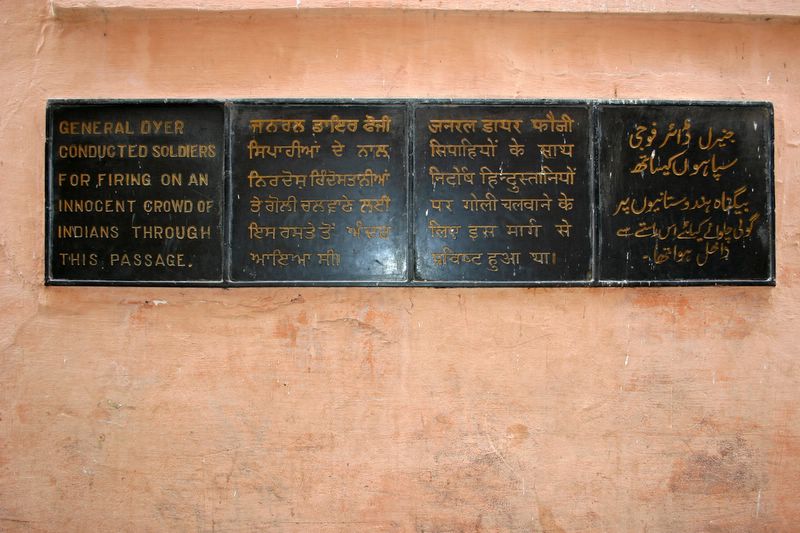 GENERAL DYER
CONDUCTED SOLDIERS
FOR FIRING ON AN
INNOCENT CROWD OF
INDIANS THROUGH
THIS PASSAGE.
ਜਨਰਲ ਡਾਇਰ ਫੌਜੀ
ਸਿਪਾਹੀਆਂ ਦੇ ਨਾਲ
ਨਿਰਦੋਸ਼ ਹਿੰਦੋਸਤਾਨੀਆਂ
ਤੇ ਗੋਲੀ ਚਲਵਾਣੇ ਲਈ
ਇਸ ਰਸਤੇ ਤੋਂ ਅੰਦਰ
ਆਇਆ ਸੀ।
जनरल डायर फौजी
सिपाहियों के साथ
निर्दोष हिन्दुस्तानियों
पर गोली चलवाने के
लिए इस मार्ग से
प्रविष्ट हुआ था।
جنرل ڈائر فوجی
سپاہیوں کیساتھ
بیگناہ ہندوستانیوں پر
گولی چلوانے کیلئے اس راستے سے
داخل ہوا تھا۔